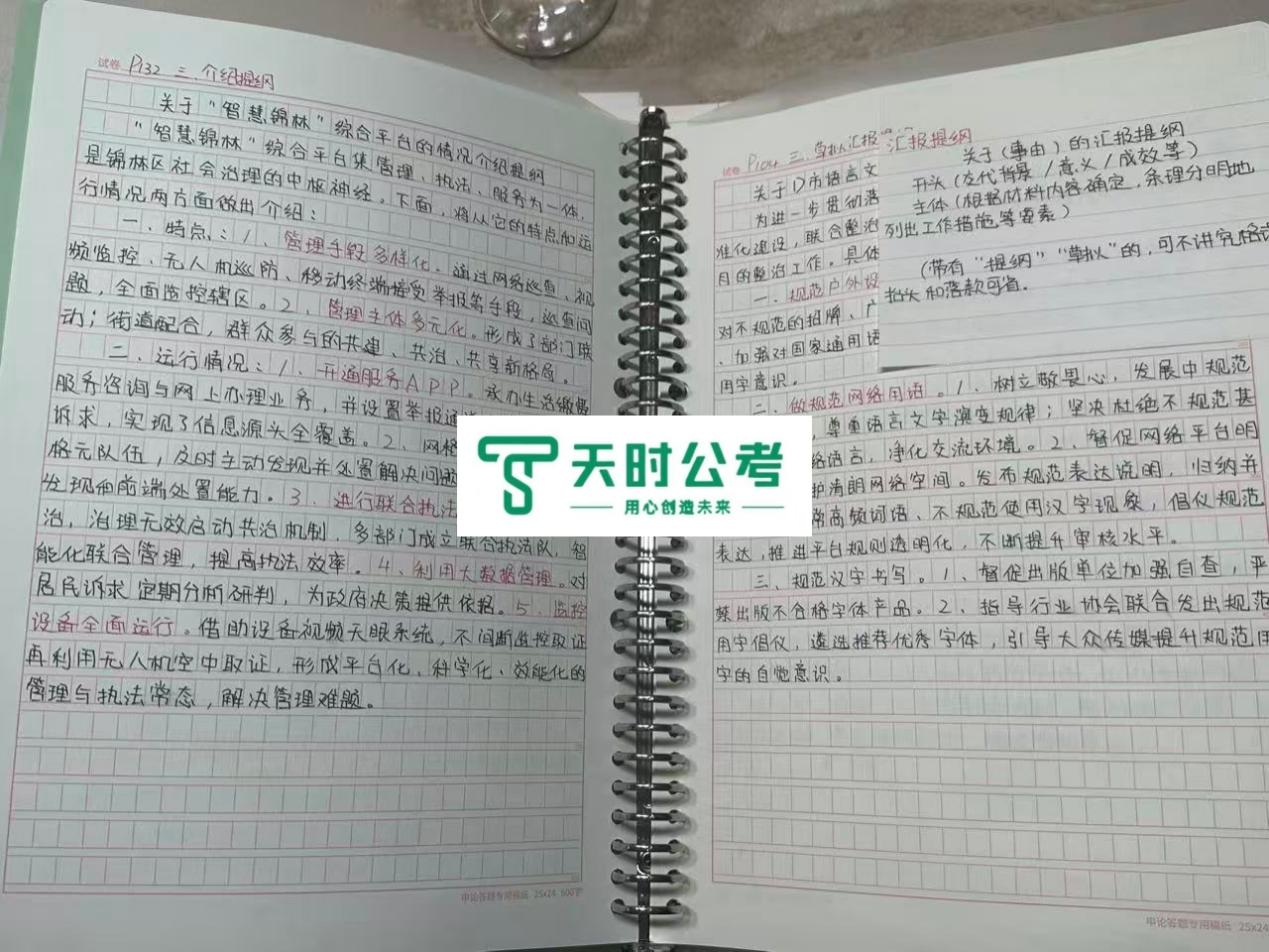 试卷 P132 三、介绍提纲
关于“智慧锦林”综合平台的情况介绍提纲
“智慧锦林”综合平台集管理、执法、服务为一体,
是锦林区社会治理的中枢神经。下面,将从它的特点和运
行情况两方面做出介绍:
一、特点:1、管理手段多样化。通过网络巡查、视
频监控、无人机巡防、移动终端接受举报等手段,巡查问
题,全面监控辖区。2、管理主体多元化。形成了部门联
动;街道配合,群众参与的共建、共治、共享新格局。
二、运行情况:1、开通服务APP。承办生活缴费
服务咨询与网上办理业务,并设置举报通
诉求,实现了信息源头全覆盖。2、网格
格元队伍,及时主动发现并处置解决问题
发现和前端处置能力。3、进行联合执法
治,治理无效启动共治机制,多部门成立联合执法队,智
能化联合管理,提高执法效率。4、利用大数据管理。对
居民诉求定期分析研判,为政府决策提供依据。5、监控
设备全面运行。借助设备视频天眼系统,不间断监控取证
再利用无人机空中取证,形成平台化、科学化、效能化的
管理与执法常态,解决管理难题。
申论答题专用稿纸 25x24 600字
试卷 P104 三、草拟汇报 汇报提纲
关于D市语言文
为进一步贯彻落
准化建设,联合整治
月的整治工作。具体
一、规范户外设
对不规范的招牌、广
、加强对国家通用语
用字意识。
关于(事由)的汇报提纲
开头(交代背景/意义/成效等)
主体(根据材料内容确定,条理分明地
列出工作措施等要素)
(带有“提纲”“草拟”的,可不讲究格式
抬头和落款可省。
二、做规范网络用语。1、树立敬畏心,发展中规范
,尊重语言文字演变规律;坚决杜绝不规范甚
络语言,净化交流环境。2、督促网络平台明
护清朗网络空间。发布规范表达说明,归纳并
常高频词语、不规范使用汉字现象,倡仪规范
表达,推进平台规则透明化,不断提升审核水平。
三、规范汉字书写。1、督促出版单位加强自查,严
禁出版不合格字体产品。2、指导行业协会联合发出规范
用字倡仪,遴选推荐优秀字体,引导大众传媒提升规范用
字的自觉意识。
申论答题专用稿纸 25x24
天时公考
用心创造未来